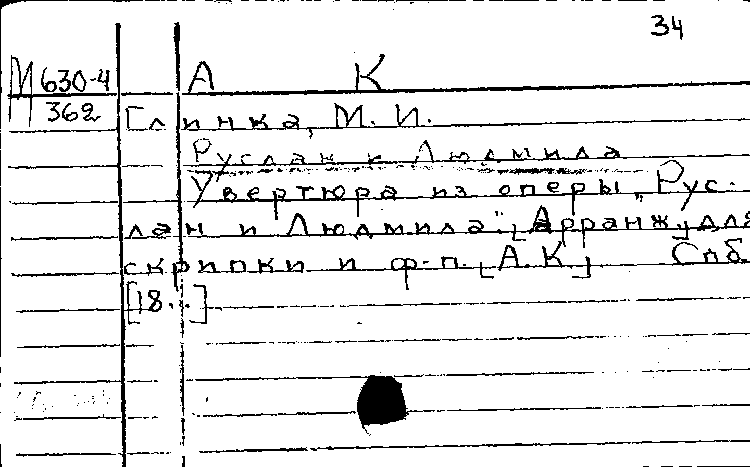 34
М 630-4 А К
362 Глинка, М. И.
Руслан и Людмила
Увертюра из оперы „Рус-
лан и Людмила". [Арранж.] для
скрипки и ф-п. [А. К.] Спб
[18..]